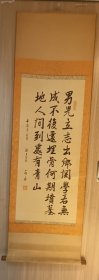 男児立志出郷関學若無
成不復還埋骨何期墳墓
地人間到處有青山